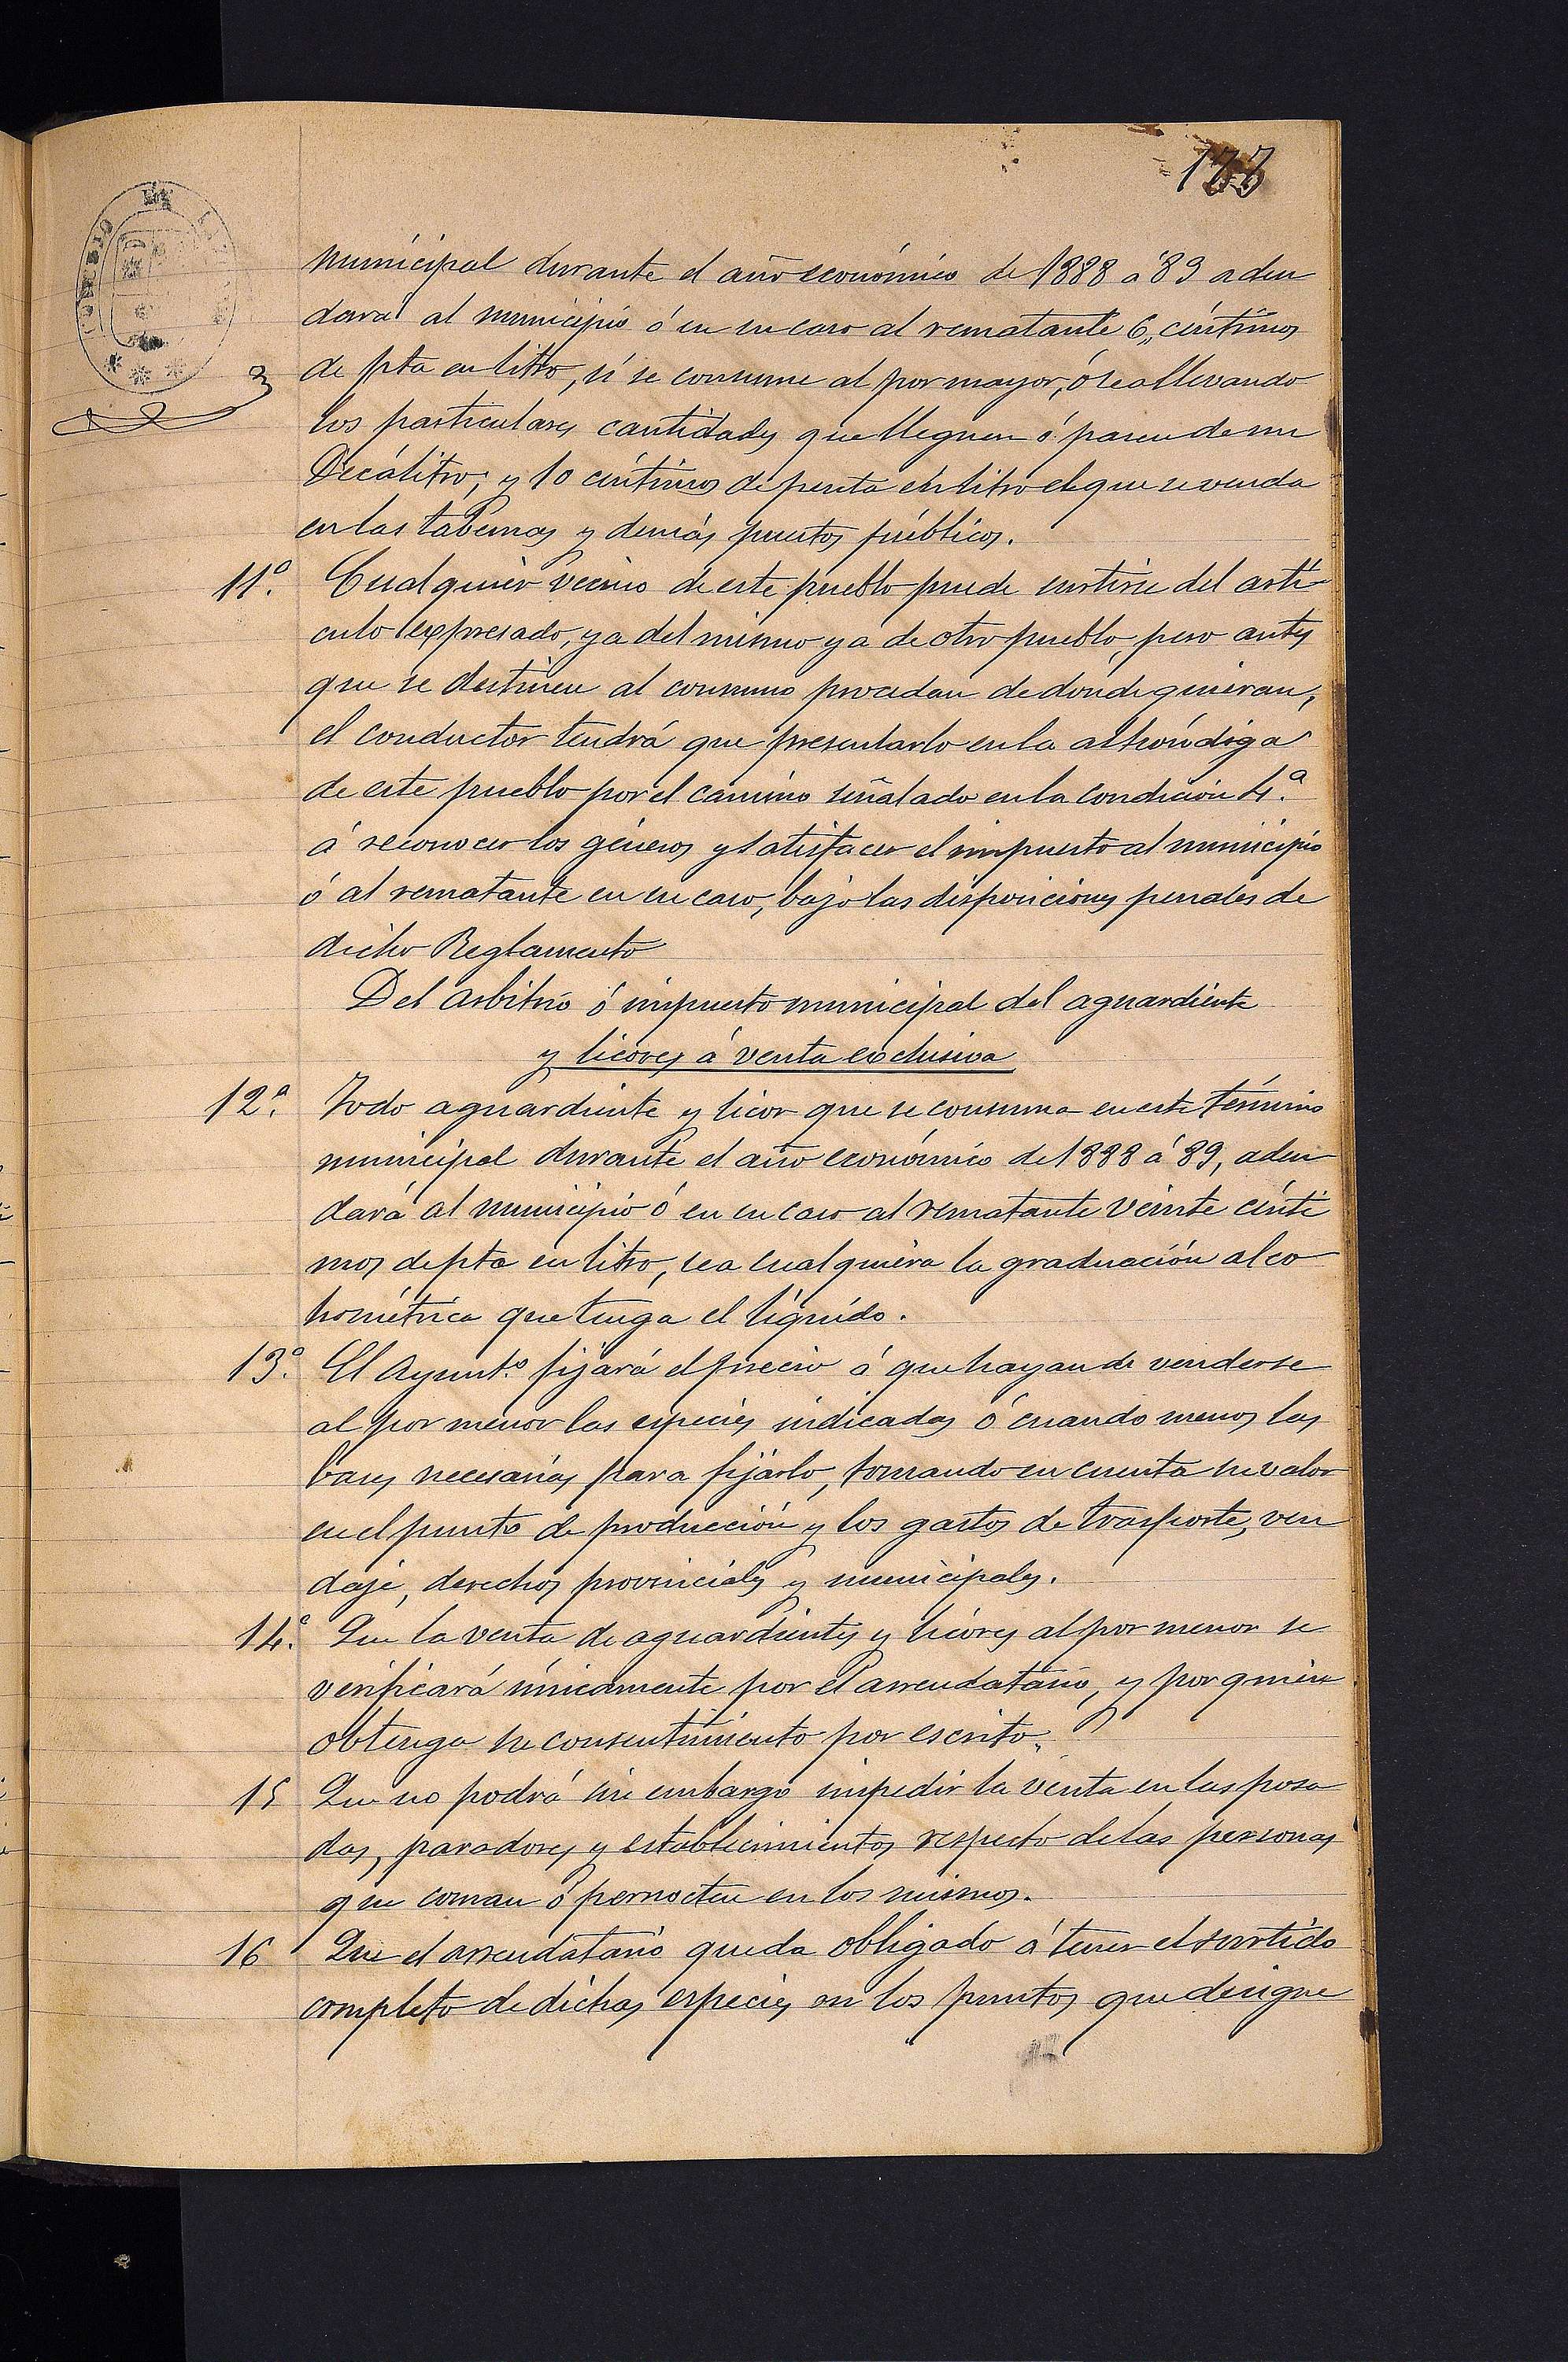 municipal durante el año económico de 1888 á 89 adeu
dará al municipio ó en su caso al rematante 6,, céntimos
de pta en litro, si se consume al por mayor, ó sea llevando
los particulares cantidades que lleguen ó pasen de un
Decálitro; y 10 céntimos de peseta en litro el que se venda
en las tabernas y demás puestos públicos.
11.ª Cualquier vecino de este pueblo puede surtirse del artí
culo expresado, ya del mismo ya de otro pueblo, pero antes
que se destinen al consumo procedan de dónde quieran,
el conductor tendrá que presentarlo en la alhóndiga
de este pueblo por el camino señalado en la condición 4.ª
á reconocer los géneros y satisfacer el impuesto al municipio
ó al rematante en su caso, bajo las disposiciones penales de
dicho Reglamento
Del arbitrio ó impuesto municipal del aguardiente
y licores á venta exclusiva
12.ª Todo aguardiente y licor que se consuma en este término
municipal durante el año económico de 1888 á 89, adeu
dará al municipio ó en su caso al rematante veinte cénti
mos de pta en litro, sea cualquiera la graduación alco
hométrica que tenga el líquido.
13.ª El Ayunt.º fijará el precio á que hayan de venderse
al por menor las especies indicadas ó cuando menos las
bases necesarias para fijarlo, tomando en cuenta su valor
en el punto de producción y los gastos de trasporte, ven
daje, derechos provinciales y municipales.
14.ª Que la venta de aguardientes y licores al por menor se
verificará únicamente por el arrendatario, y por quien
obtenga su consentimiento por escrito.
15 Que no podrá sin embargo impedir la venta en las posa
das, paradores y establecimientos respecto de las personas
que coman ó pernocten en los mismos.
16 Que el arrendatario queda obligado á tener el surtido
completo de dichas especies en los puntos que designe